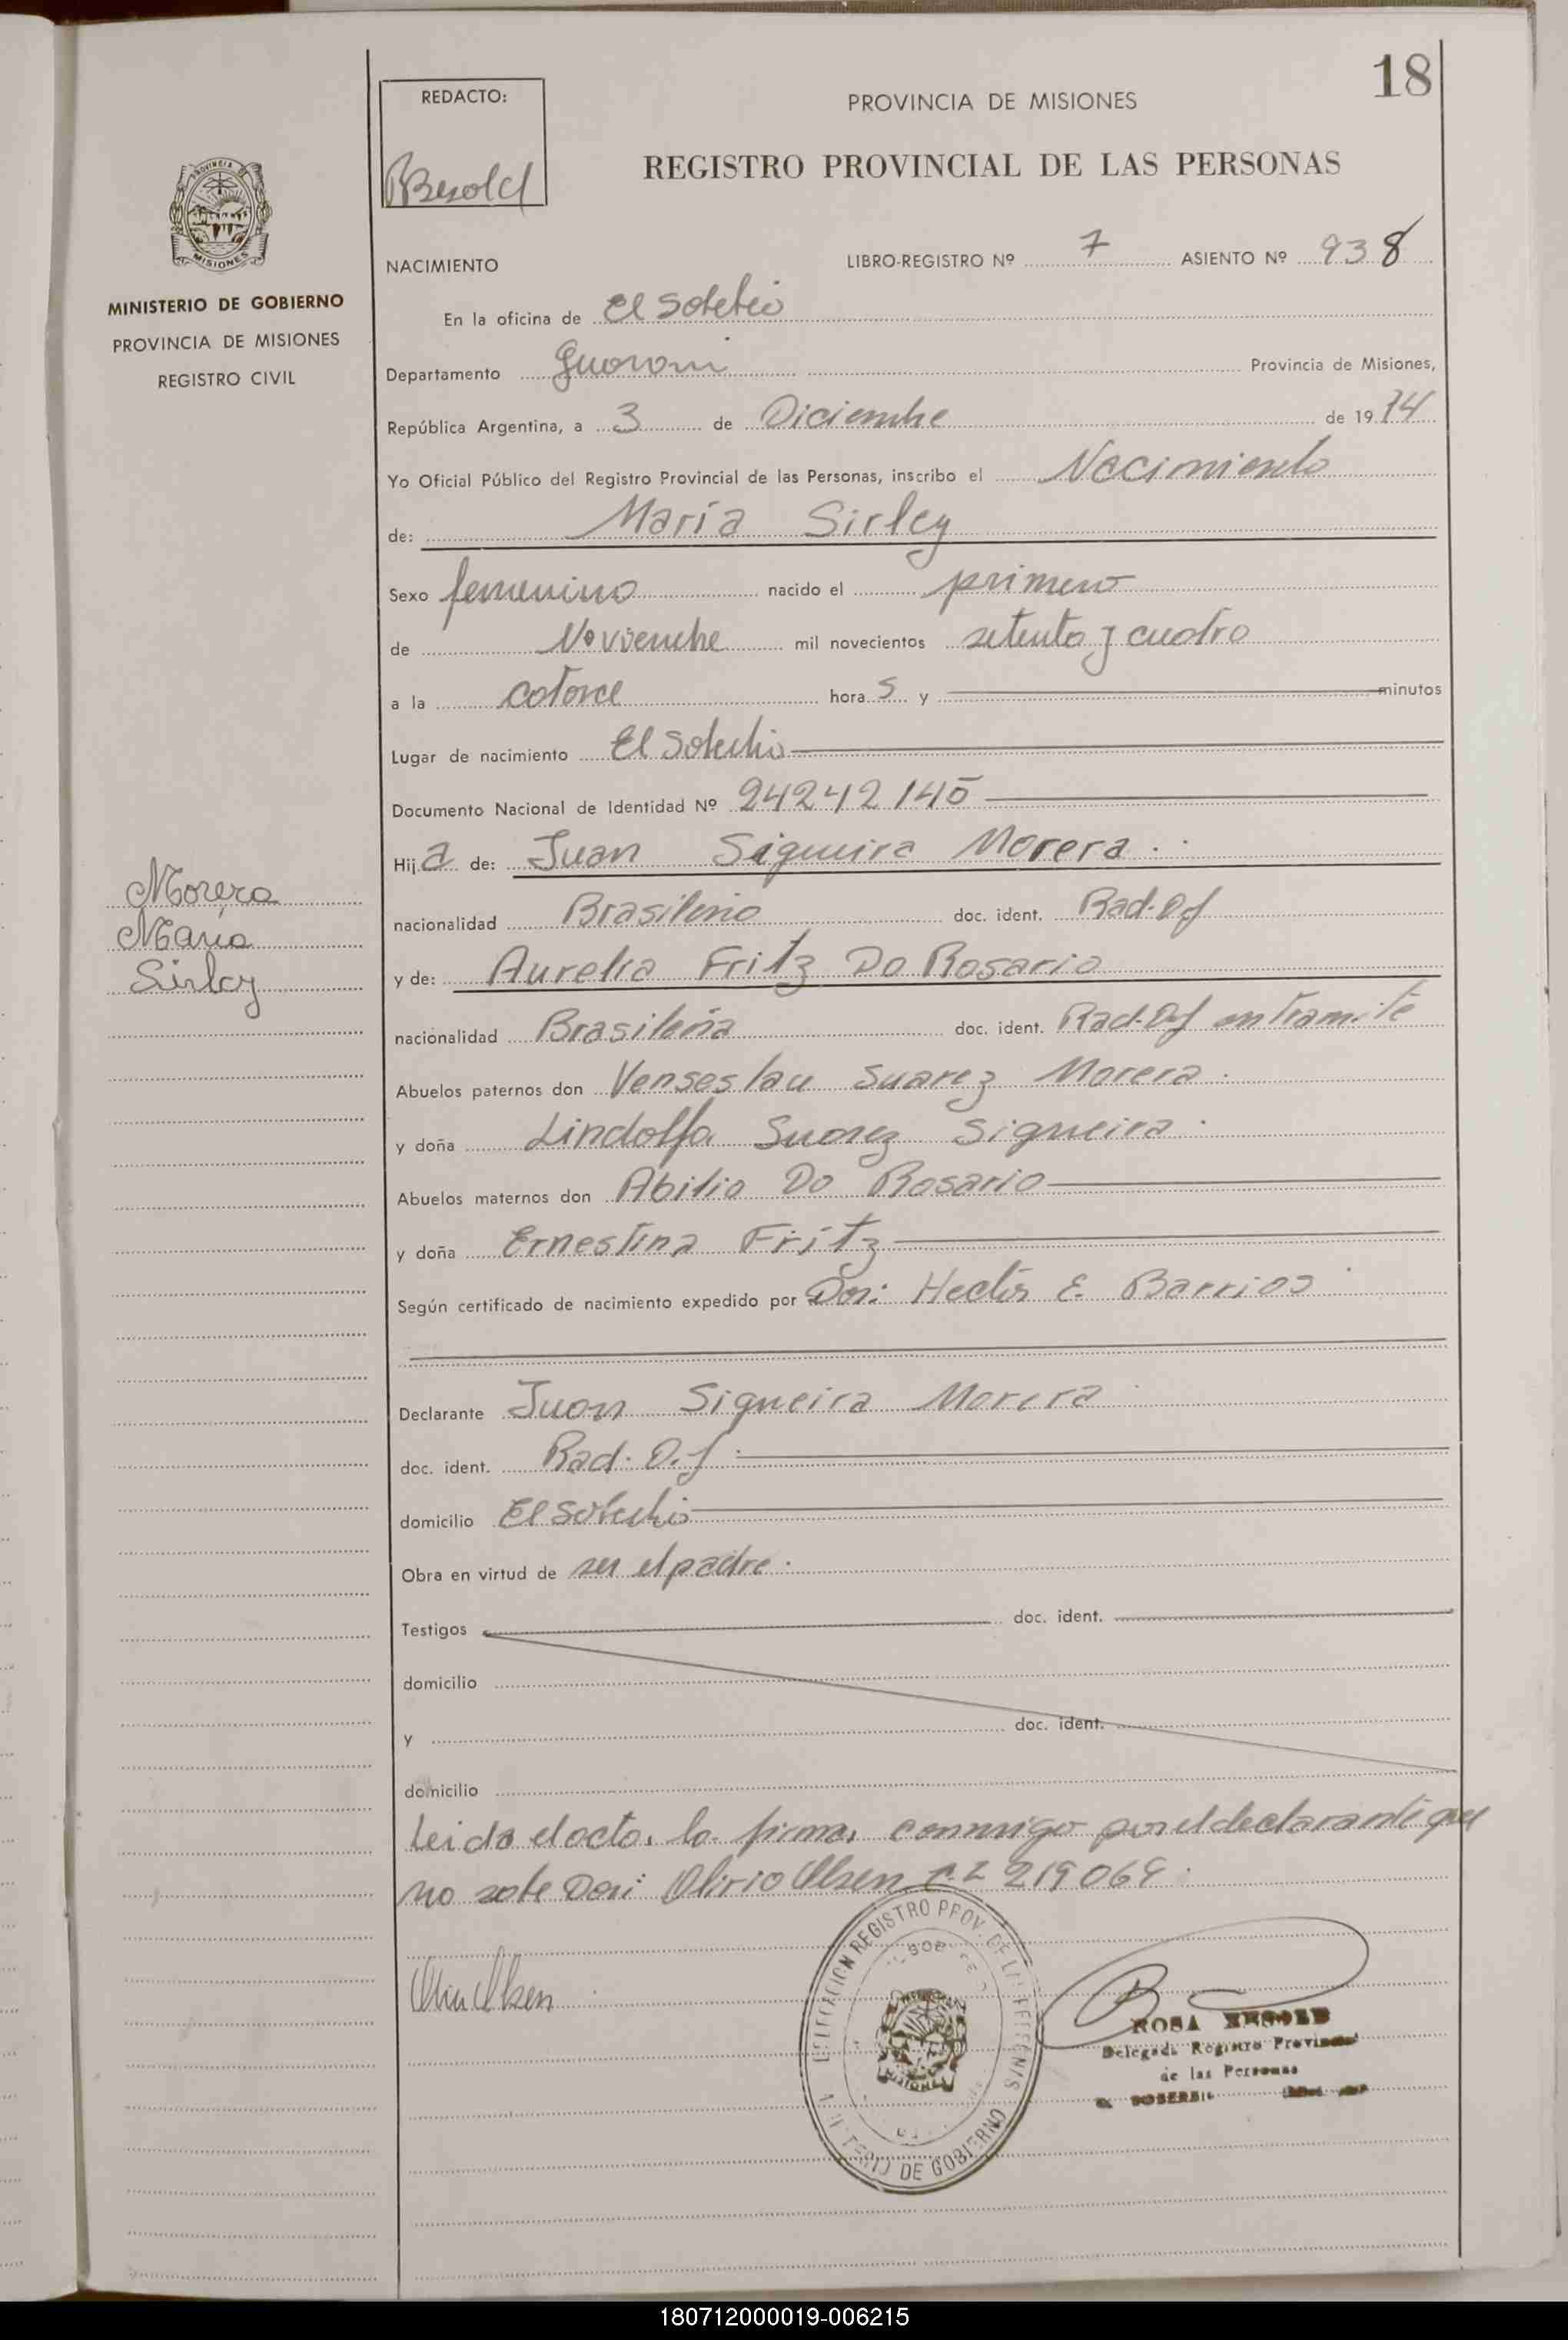 18
REDACTO:
PROVINCIA DE MISIONES
REGISTRO PROVINCIAL DE LAS PERSONAS
MISIONES
MINISTERIO DE GOBIERNO
PROVINCIA DE MISIONES
REGISTRO CIVIL
NACIMIENTO
LIBRO-REGISTRO Nº 7 ASIENTO Nº 938
En la oficina de El Soberbio
Departamento Guarani Provincia de Misiones,
República Argentina, a 3 de Diciembre de 1974
Yo Oficial Público del Registro Provincial de las Personas, inscribo el Nacimiento
de: María Sirley
Sexo femenino nacido el primero
de Noviembre mil novecientos setenta y cuatro
a la catorce hora s y minutos
Lugar de nacimiento El Soberbio
Documento Nacional de Identidad Nº 24242145
Hij a de: Juan Siqueira Morera
nacionalidad Brasileño doc. ident. Rad. Df
y de: Aurelia Fritz Do Rosario
nacionalidad Brasileña doc. ident. Rad. Df en tramite
Abuelos paternos don Venseslau Suarez Morera
y doña Lindolfa Suarez Siqueira
Abuelos maternos don Abilio Do Rosario
y doña Ernestina Fritz
Según certificado de nacimiento expedido por Don: Hectór E. Barrios
Declarante Juan Siqueira Morera
doc. ident. Rad. D.f
domicilio El Soberbio
Obra en virtud de ser el padre
Testigos doc. ident.
domicilio
y doc. ident.
domicilio
Leida el acta, la firma, conmigo por el declarante que
no sabe Don: Olirio Olsen 219069
Morera
Maria
Sirley
REGISTRO PROV. DE LAS
MISIONES
DE GOBIERNO
ROSA
Delegada Registro Provincial
de las Personas
180712000019-006215